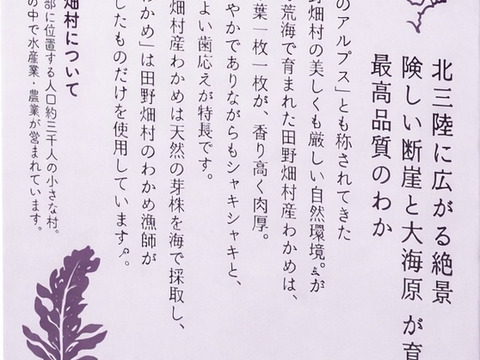 北三陸に広がる絶景
険しい断崖と大海原 が育
最高品質のわか
のアルプス」とも称されてきた
野畑村の美しくも厳しい自然環境。が
荒海で育まれた田野畑村産わかめは、
葉一枚一枚が、香り高く肉厚。
やかでありながらもシャキシャキと、
よい歯応えが特長です。
畑村産わかめは天然の芽株を海で採取し、
わかめ」は田野畑村のわかめ漁師が
したものだけを使用しています。
畑村について
部に位置する人口約三千人の小さな村。
の中で水産業・農業が営まれています。